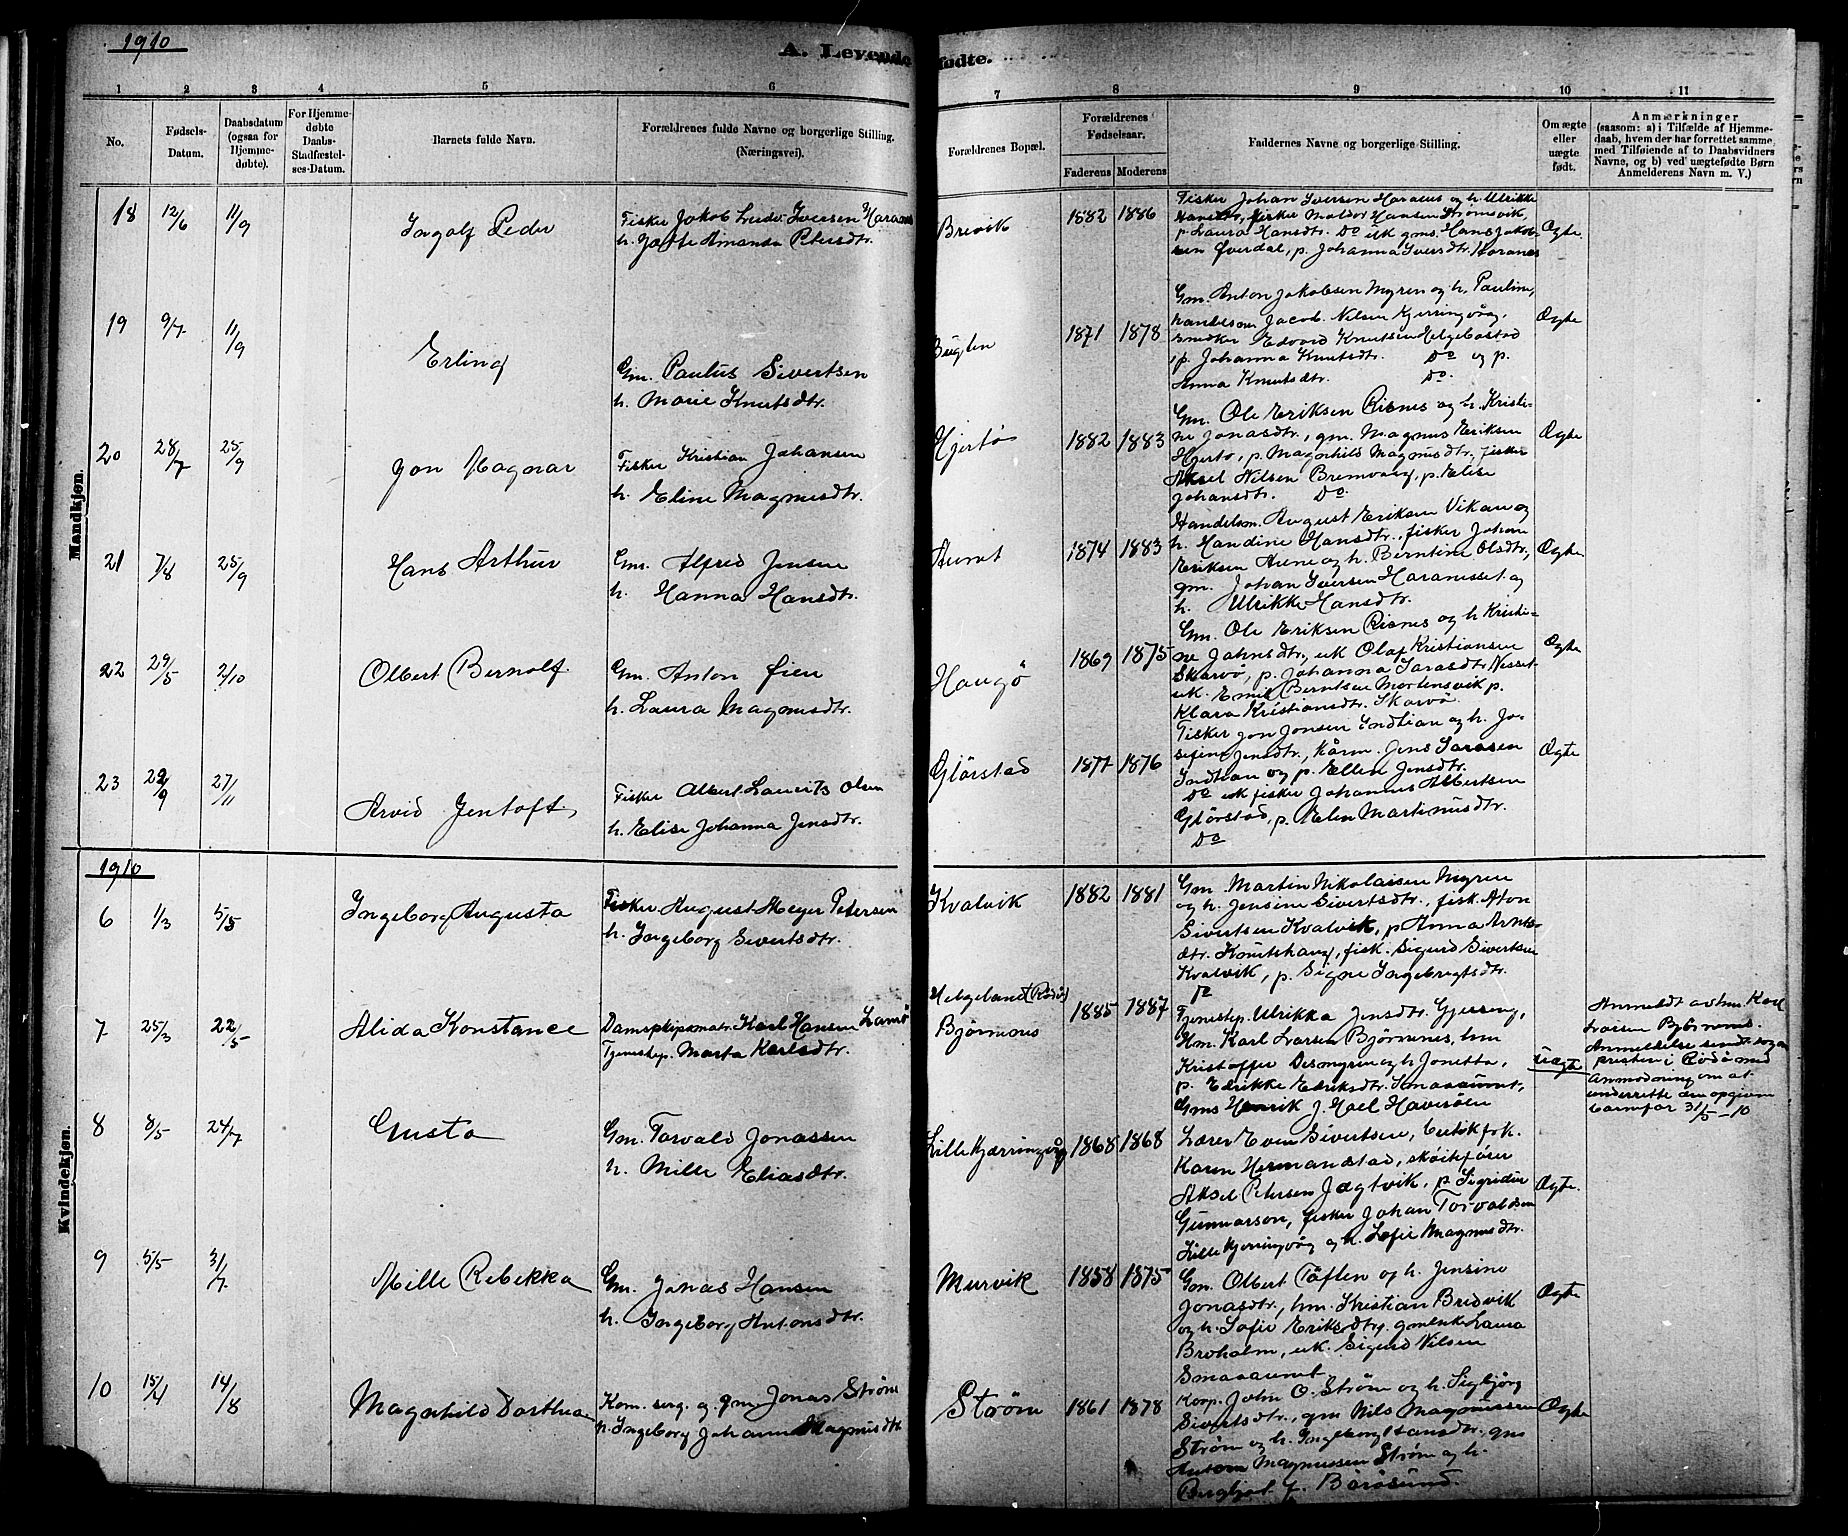 1910
A. Levende fødte.
1 2 3 4 5 6 7 8 8 9 10 11
No.
Fødsels-
Datum.
Daabsdatum
(ogsaa for
Hjemme-
døbte).
For Hjemme-
døbte
Daabs-
Stadfæstel-
ses-Datum.
Barnets fulde Navn.
Forældrenes fulde Navne og borgerlige Stilling.
(Næringsvei).
Forældrenes Bopæl.
Forældrenes
Fødselsaar.
Faderens Moderens
Faddernes Navne og borgerlige Stilling.
Om ægte
eller
uægte
født.
Anmærkninger
(saasom: a) i Tilfælde af Hjemme-
daab, hvem der har forrettet samme,
med Tilføiende af to Daabsvidners
Navne, og b) ved uægtefødte Børn
Anmelderens Navn m. V.)
Mandkjøn.
18 12/6 11/9 Ingolf Peder
Fisker Jakob Iversen
h. Amanda Petersdtr.
Brevik 1882 1886
Fisker Johan Iversen og h. Ulrikke
fisker Hansen Strømsvik,
p. Laura Hansdtr. Do uk gms. Hans Jakob-
sen Øverdal, p. Johanna Iversdtr.
Ægte
19 9/7 11/9 Erling
Gm. Paulus Sivertsen
h. Marie Knutsdtr.
Bugten 1871 1878
Gm. Anton Jakobsen Myren og h. Pauline,
handelsm. Jacob Nilsen Kjerringvåg,
Edvard Knutsen Helgebostad
p. Johanna Knutsdtr. Do og p.
Anna Knutsdtr. Do.
Ægte
20 28/7 25/9 Jon Magnar
Fisker Kristian Johansen
h. Eline Magnusdtr.
Hjertø 1882 1883
Gm. Ole Eriksen Risnes og h. Kristi-
ne Jonasdtr., gm. Magnus Eriksen
Hjertø, p. Magnhild Magnusdtr, fisker
Aksel Nilsen Bremvaag, p. Elise
Johansdtr. Do.
Ægte
21 7/8 25/9 Hans Arthur
Gm. Alfred Jensen
h. Hanna Hansdtr.
Aunet 1874 1883
Handelsm. August Eriksen Vikan og
h. Handine Hansdtr., fisker Johan
Eriksen Aune og h. Berntine Olsdtr,
gm. Johan Iversen og
h. Ulrikke Hansdtr.
Ægte
22 29/5 2/10 Olbert Bernolf
Gm. Anton Øien
h. Laura Magnusdtr.
Haugø 1869 1875
Gm. Ole Eriksen Risnes og h Kristi-
ne Jahnsdtr, uk Olaf Kristiansen
Skarvø, p. Johanna Sarasdtr Nesset
uk. Emil Berntsen Mortensvik p.
Klara Kristiansdtr. Skarvø.
Ægte
23 29/9 27/11 Arvid Jentoft
Fisker Albert Laurits Olsen
h. Elise Johanna Jensdtr.
Glørstad 1877 1876
Fisker Jon Jonsen Indtian og h. Jo-
sefine Jensdtr, kårm. Jens Sarasen
Indtian og p. Ellen Jensdtr.
Do uk fisker Johannes Albertsen
Glørstad, p. Elen Martinusdtr.
Do
Ægte
1910
Kvindekjøn.
6 1/3 5/5 Ingeborg Augusta
Fisker August Meyer Petersen
h. Ingeborg Sivertsdtr.
Kvalvik 1882 1881
Gm. Martin Nikolaisen Myren
og h. Jensine Sivertsdtr., fisk. Aton
Sivertsen Kvalvik, p Anna Arnts-
dtr. Knutshaug, fisk. Sigurd Sivertsen
Kvalvik, p. Signe Ingebrigtsdtr.
Do
7 25/3 22/5 Alida Konstance
Dampskipsmatr. Karl Hansen
Tjenestep. Marta Karlsdtr.
Helgeland (Rødø)
Bjørnnes 1885 1887
Tjenestep. Ulrikka Jensdtr. Gjessing,
Hm. Karl Larsen Bjørnnes, hm
Kristoffer og h. Jonetta,
p. Edrikke Edriksdtr. Smaaaunet,
Gms Henrik J. Hoel Havisøen
Uægte
Anmeldt av hm. Karl
Larsen Bjørnnes.
Anmeldelse sendt sogne
presten i Rødø med
anmodning om at
underrette den opgivne
barnefar 31/5-10
8 8/5 24/7 Gusta
Gm. Torvald Jonassen
h. Mille Eliasdtr.
Lille Kjærringvåg 1868 1868
Lærer Even Sivertsen,
Karen Hermanstad, skøitefører
Aksel Petersen Jægtvik, p. Sigridur
Gunnarson, fisker Johan Torvaldsen
Lille Kjerringvåg og h. Sofie Magnusdtr.
Ægte.
9 5/5 31/7 Mille Rebekka
Gm. Jonas Hansen
h. Ingeborg Antonsdtr.
Murvik 1858 1875
Gm. Olbert Tøften og h. Jensine
Jonasdtr., hm. Kristian Bredvik
og h. Sofie Eriksdtr. Laura
Broholm, uk. Sigurd Nilsen
Smaaaunet
Ægte
10 15/4 14/8 Magnhild Dorthea
Kom. serg. og gm Jonas Strøm
h. Ingeborg Johanna Magnusdtr
Strøm 1861 1878
Korp. John O. Strøm og h. Sigbjørg
Sivertsdtr., gm Nils Magnussen
Strøm og h. Ingeborg Hansdtr. gm
Anton Magnussen Strøm og h.
Bergljot f. Børøsund.
Ægte